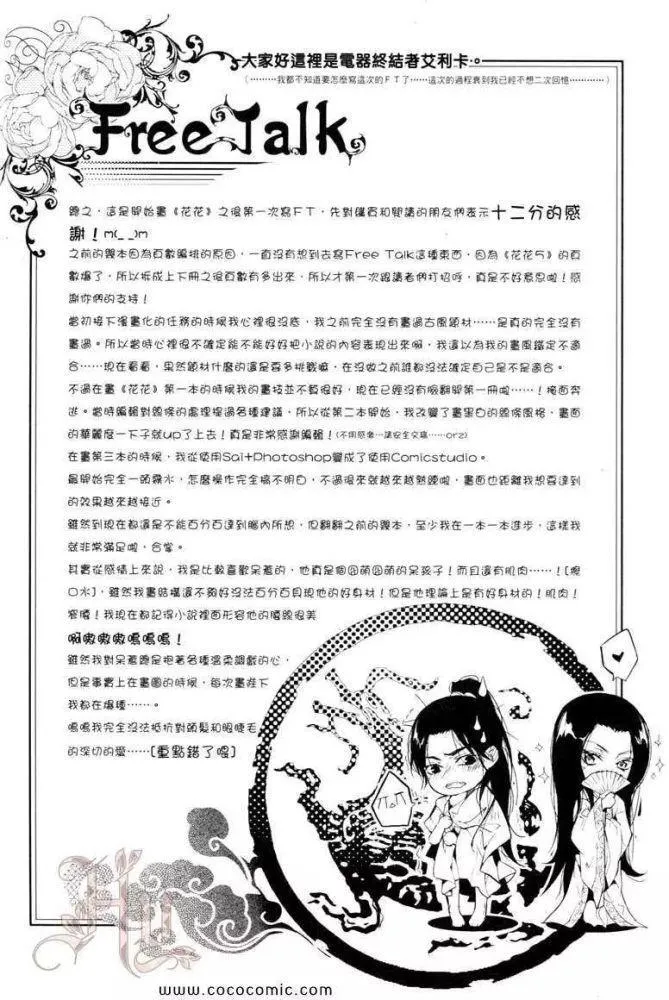 大家好這裡是電器終結者艾利卡。
(………我都不知道要怎麼寫這次的FT了……這次的過程衰到我已經不想二次回憶…………)
Free Talk
總之，這是開始畫《花花》之後第一次寫FT，先對購買和閱讀的朋友們表示十二分的感
謝！m(_ _)m
之前的劇本因為頁數編排的原因，一直沒有想到去寫Free Talk這種東西，因為《花花5》的頁
數爆了，所以拆成上下冊之後頁數有多出來，所以才第一次跟讀者們打招呼，真是不好意思啦！感
謝你們的支持！
當初接下漫畫化的任務的時候我心裡很沒底，我之前完全沒有畫過古風題材……是真的完全沒有
畫過。所以當時心裡很不確定能不能好好把小說的內容表現出來啊，我還以為我的畫風鐵定不適
合……現在看看，果然題材什麼的還是要多挑戰嘛，在沒做之前誰都沒法確定自己是不是適合。
不過在畫《花花》第一本的時候我的畫技並不算很好，現在已經沒有臉翻開第一冊啦……！掩面奔
逃。當時編輯對題候的處理提過各種建議，所以從第二本開始，我改變了畫黑白的時候風格，畫面
的華麗度一下子就up了上去！真是非常感謝編輯！(不用感者…請安全交稿……orz)
在畫第三本的時候，我從使用Sai+Photoshop變成了使用Comicstudio。
最開始完全一頭霧水，怎麼操作完全搞不明白，不過後來就越來越熟練啦，畫面也距離我想要達到
的效果越來越接近。
雖然到現在都還是不能百分百達到腦內所想，但翻翻之前的劇本，至少我在一本一本進步，這樣我
就非常滿足啦，合掌。
其實從感情上來說，我是比較喜歡呆蕙的，他真是個囧萌囧萌的呆孩子！而且還有肌肉……！[擦
口水]，雖然我畫時構還不夠好沒法百分百具現他的好身材！但是他理論上是有好身材的！肌肉！
賽隔！我現在都記得小說裡面形容他的腰線很美
啊嗷嗷嗷嗚嗚嗚！
雖然我對呆蕙總是抱著各種溫柔調戲的心，
但是事實上在畫圖的時候，每次畫莊下
我都在爆種……。
嗚嗚我完全沒法抵抗對頭髮和眼睫毛
的深切的愛……[重點錯了喂]
π_π
Hu
www.cococomic.com